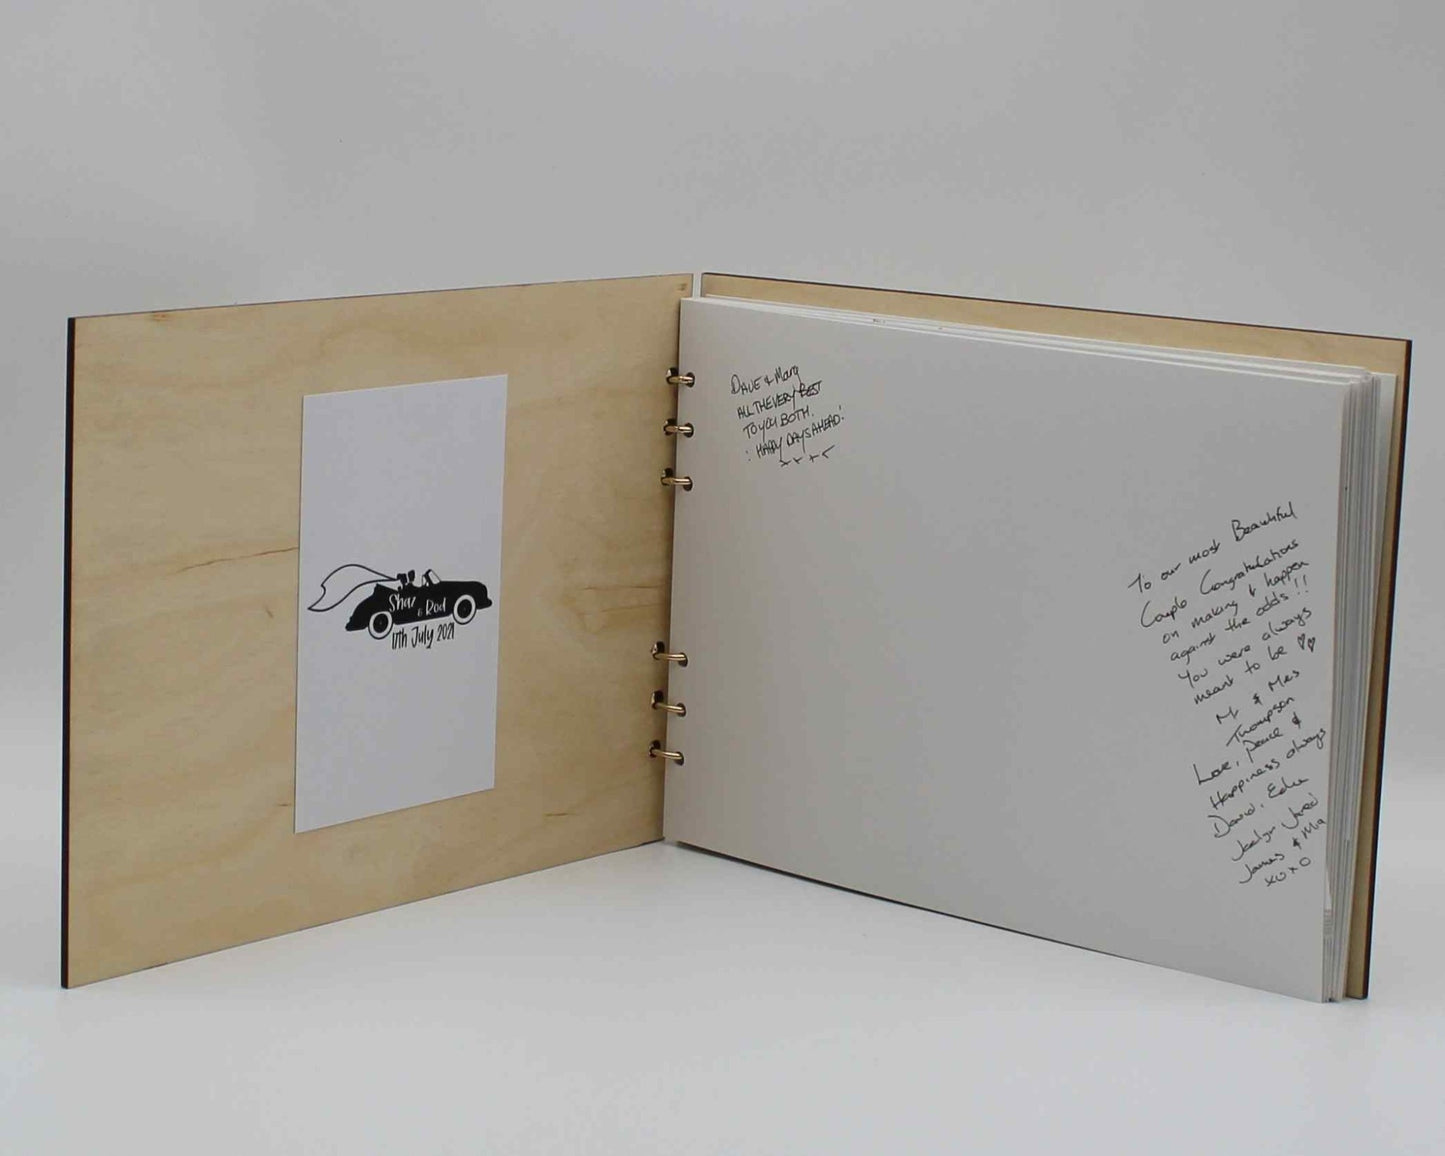 Shaz
& Rod
17th July 2021
DAVE & Marg
ALL THE VERY BEST
TO YOU BOTH.
: HAPPY DAYS AHEAD!
To our most Beautiful
Couple Congratulations
on making it happen
against the odds!!
You were always
meant to be ♡♡
Mr & Mrs
Thompson
Love, Peace &
Happiness always
David,
James & Mia
xoxo